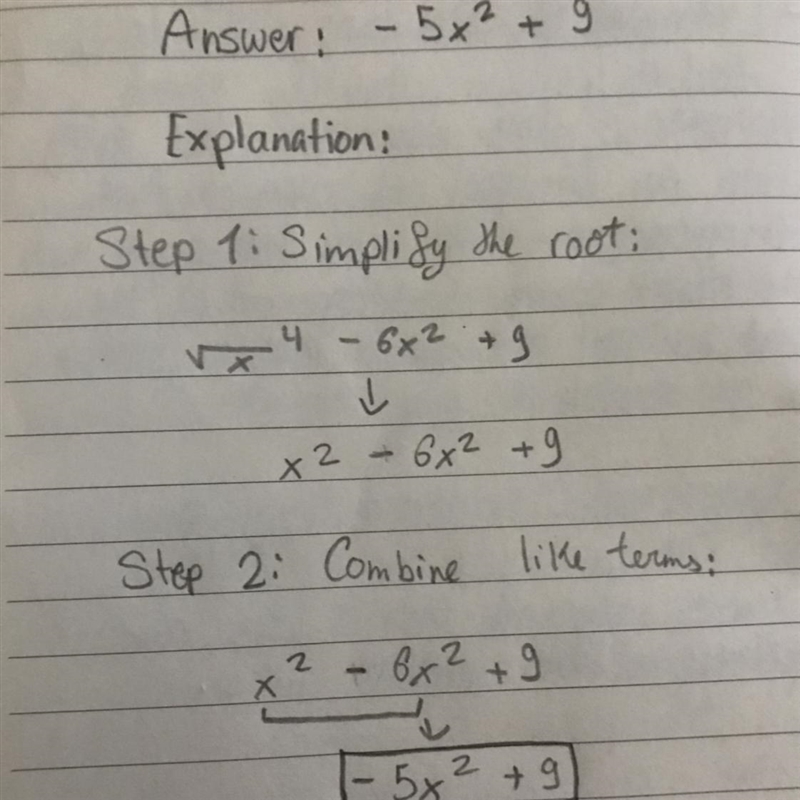 Answer: - 5x² + 9
Explanation:
Step 1: Simplify the root:
√x⁴ - 6x² + 9
↓
x² - 6x² + 9
Step 2: Combine like terms:
x² - 6x² + 9
↓
- 5x² + 9